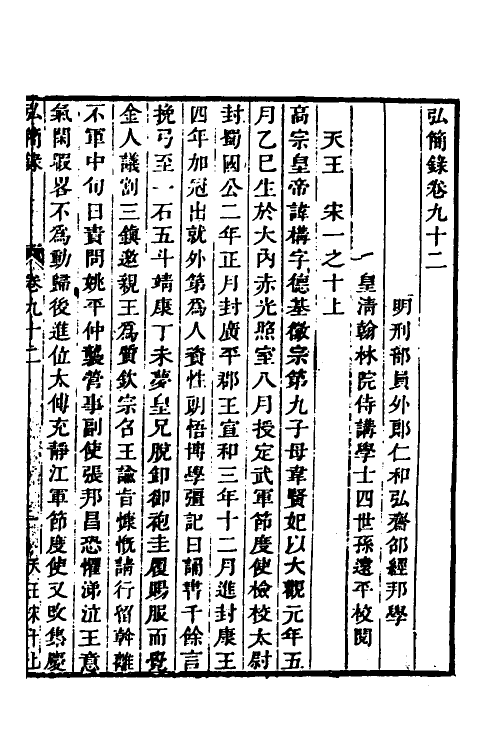 弘簡錄卷九十二
明刑部員外郎仁和弘齋邵經邦學
皇清翰林院侍講學士四世孫遠平校閱
天王 宋一之十上
高宗皇帝諱構字德基徽宗第九子母韋賢妃以大觀元年五
月乙巳生於大內赤光照室八月授定武軍節度使檢校太尉
封蜀國公二年正月封廣平郡王宣和三年十二月進封康王
四年加冠出就外第為人資性朗悟博學彊記日誦書千餘言
挽弓至一石五斗靖康丁未夢皇兄脫卸御袍圭履賜服而覺
金人議割三鎮邀親王為質欽宗召王諭旨慷慨請行留斡離
不軍中旬日責問姚平仲襲營事副使張邦昌恐懼涕泣王意
氣閑暇畧不為動歸後進位太傅充靜江軍節度使又改集慶
弘簡錄 卷九十二